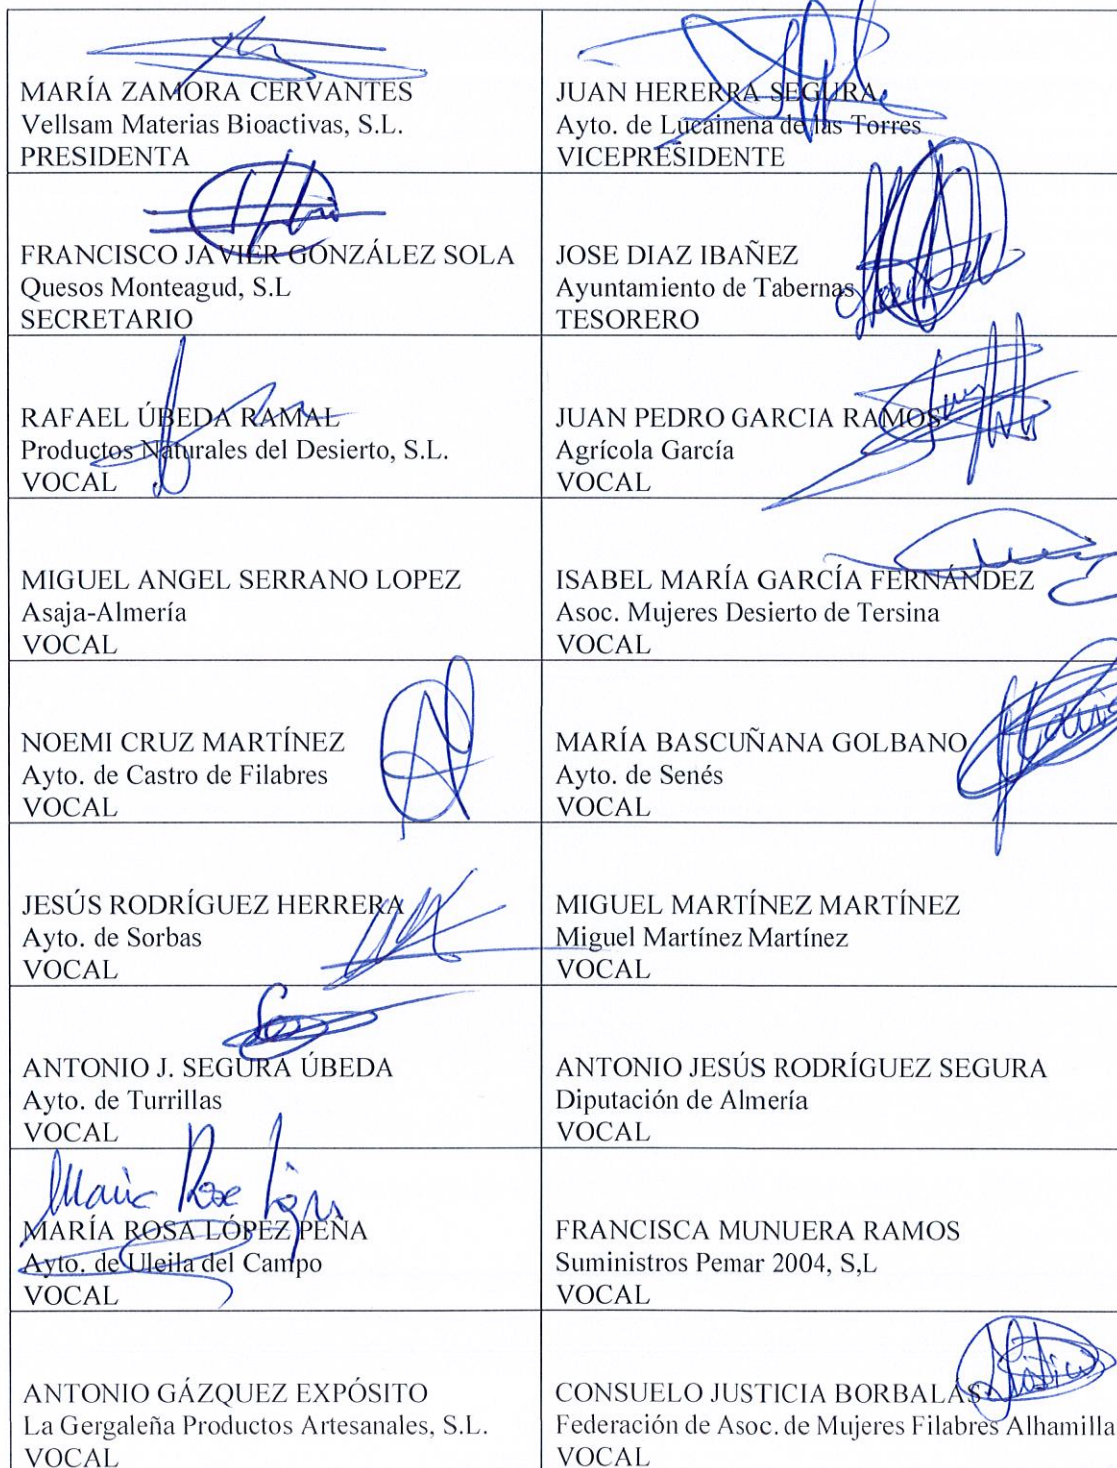 MARÍA ZAMORA CERVANTES
Vellsam Materias Bioactivas, S.L.
PRESIDENTA
JUAN HERERRA SEGURA
Ayto. de Lucainena de las Torres
VICEPRESIDENTE
FRANCISCO JAVIER GONZÁLEZ SOLA
Quesos Monteagud, S.L
SECRETARIO
JOSE DIAZ IBAÑEZ
Ayuntamiento de Tabernas
TESORERO
RAFAEL ÚBEDA RAMAL
Productos Naturales del Desierto, S.L.
VOCAL
JUAN PEDRO GARCIA RAMOS
Agrícola García
VOCAL
MIGUEL ANGEL SERRANO LOPEZ
Asaja-Almería
VOCAL
ISABEL MARÍA GARCÍA FERNÁNDEZ
Asoc. Mujeres Desierto de Tersina
VOCAL
NOEMI CRUZ MARTÍNEZ
Ayto. de Castro de Filabres
VOCAL
MARÍA BASCUÑANA GOLBANO
Ayto. de Senés
VOCAL
JESÚS RODRÍGUEZ HERRERA
Ayto. de Sorbas
VOCAL
MIGUEL MARTÍNEZ MARTÍNEZ
Miguel Martínez Martínez
VOCAL
ANTONIO J. SEGURA ÚBEDA
Ayto. de Turrillas
VOCAL
ANTONIO JESÚS RODRÍGUEZ SEGURA
Diputación de Almería
VOCAL
María Rosa López
MARÍA ROSA LÓPEZ PEÑA
Ayto. de Uleila del Campo
VOCAL
FRANCISCA MUNUERA RAMOS
Suministros Pemar 2004, S,L
VOCAL
ANTONIO GÁZQUEZ EXPÓSITO
La Gergaleña Productos Artesanales, S.L.
VOCAL
CONSUELO JUSTICIA BORBALÁS
Federación de Asoc. de Mujeres Filabres Alhamilla
VOCAL